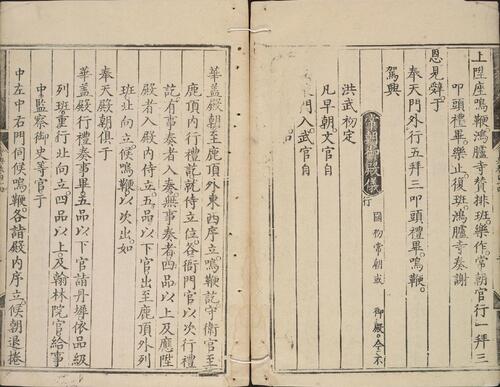 上陞座鳴鞭鴻臚寺贊排班樂作常朝官行一拜三
叩頭禮畢樂止復班鴻臚寺奏謝
恩見辭于
奉天門外行五拜三叩頭禮畢鳴鞭
駕興
常朝御殿儀 國初常朝或 御殿今不
行
洪武初定
凡早朝文官自
門入武官自
華蓋殿朝至鹿頂外東西序立鳴鞭訖守衛官至
鹿頂內行禮訖就侍立位各衙門官以次行禮
訖有事奏者入奏無事奏者四品以上及應陞
殿者入殿內侍立五品以下官出至鹿頂外列
班北向立候鳴鞭以次出如
奉天殿朝俱于
華蓋殿行禮奏事畢五品以下官詣丹墀依品級
列班重行北向立四品以上及翰林院官給事
中監察御史等官于
中左中右門伺候鳴鞭各詣殿內序立候朝退捲